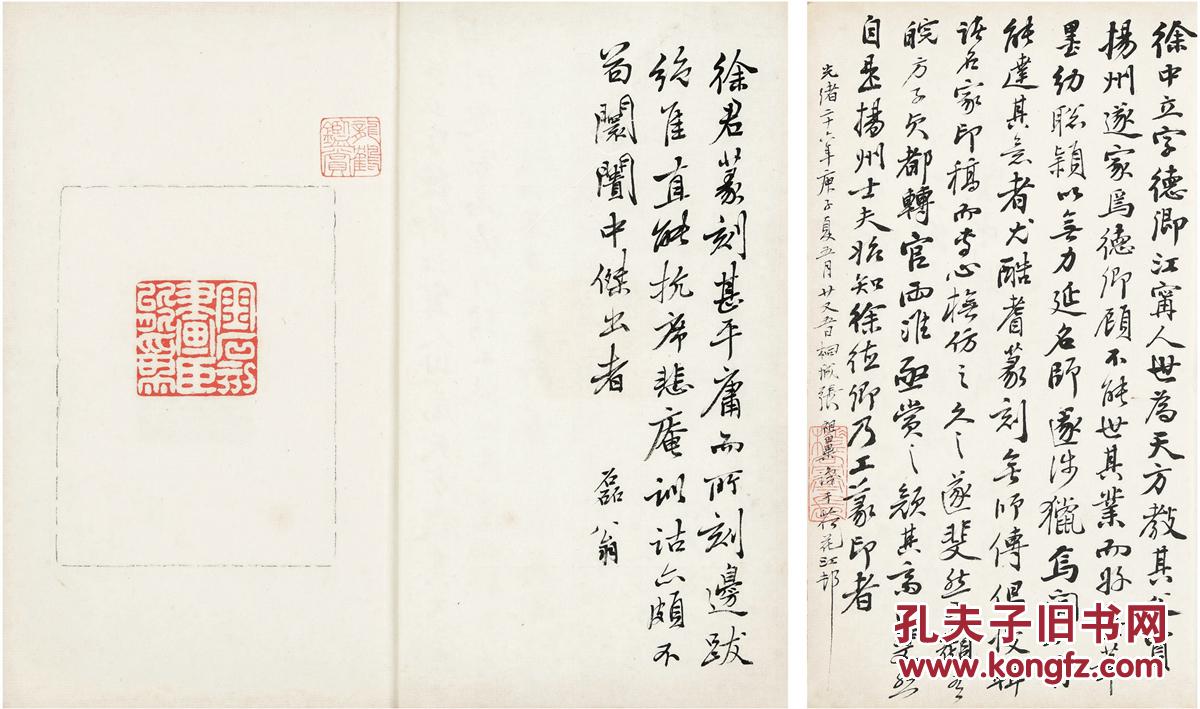 徐中立字德卿江甯人世為天方教其父賈
揚州遂家焉德卿顧不能世其業而好
墨幼聡穎以無力延名師遂涉獵焉
能達其意者尤酷耆篆刻無師傳但
諸名家印稿而専心橅仿之久之遂斐然
皖方子久都轉官兩淮亟賞之顔其
自是揚州士夫始知徐德卿乃工篆印者
光緒二十六年庚子夏五月廿又五日桐城張祖翼識于
徐君篆刻甚平庸而所刻邊跋
絶隹直能抗席悲盦訓詁亦頗不
苟闤闠中傑出者
磊翁
龍鶴
鑑賞
孔夫子旧书网
www.kongfz.com